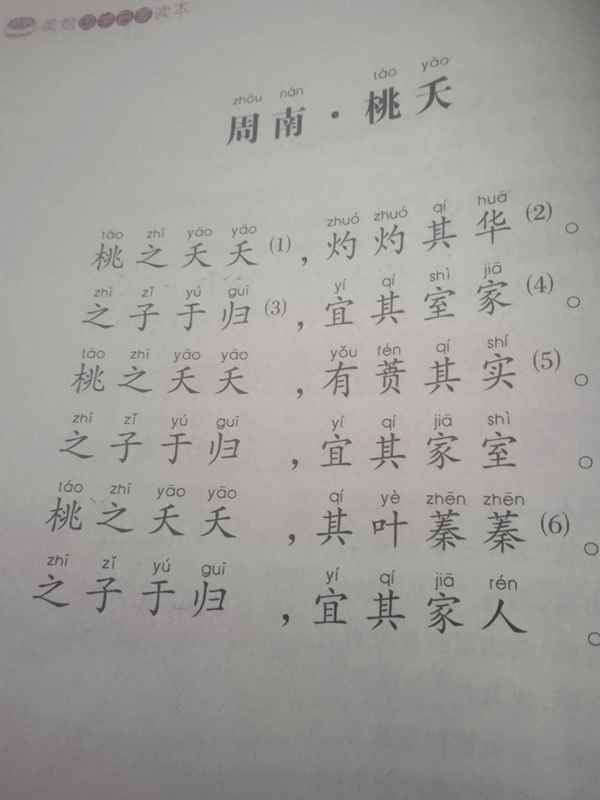 读本
zhōu nán táo yāo
周南·桃夭
táo zhī yāo yāo zhuó zhuó qí huā
桃之夭夭(1),灼灼其华(2)。
zhī zǐ yú guī yí qí shì jiā
之子于归(3),宜其室家(4)。
táo zhī yāo yāo yǒu fén qí shí
桃之夭夭,有蕡其实(5)。
zhī zǐ yú guī yí qí jiā shì
之子于归,宜其家室。
táo zhī yāo yāo qí yè zhēn zhēn
桃之夭夭,其叶蓁蓁(6)。
zhī zǐ yú guī yí qí jiā rén
之子于归,宜其家人。